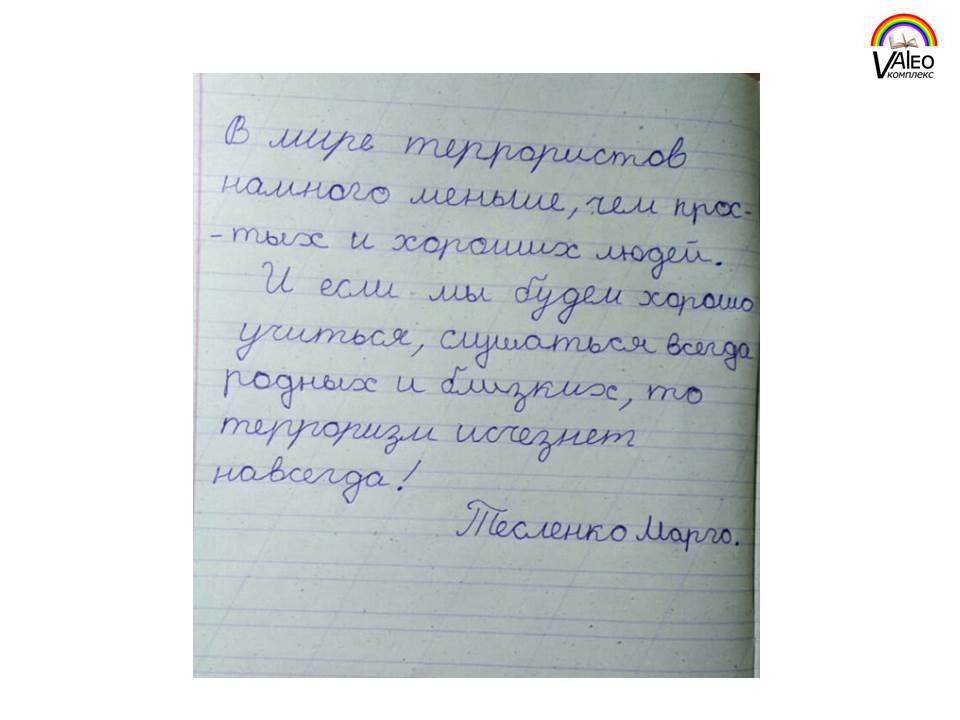 VAlEO
комплекс
В мире террористов
намного меньше, чем прос-
-тых и хороших людей.
И если мы будем хорошо
учиться, слушаться всегда
родных и близких, то
терроризм исчезнет
навсегда!
Тесленко Марго.